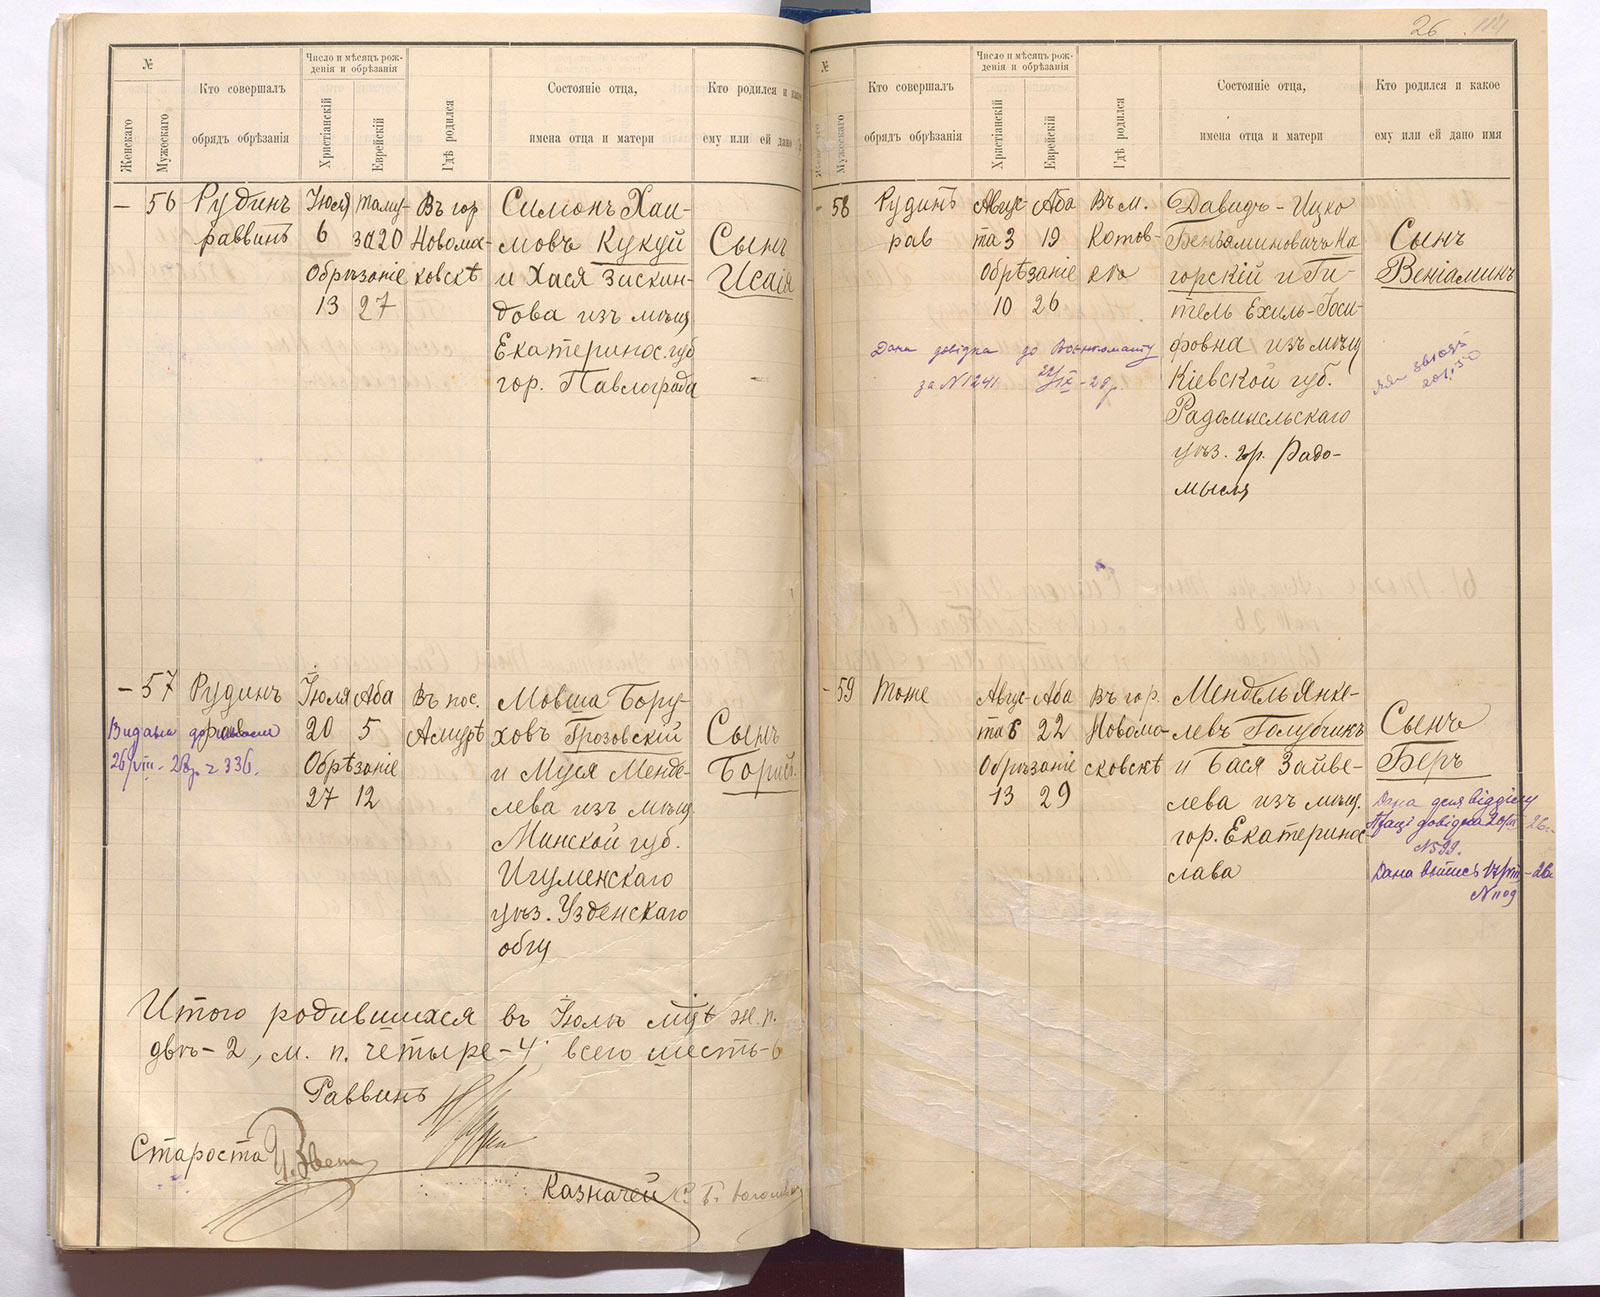 26
№
Женскаго
Мужескаго
Кто совершалъ
обрядъ обрѣзанія
Число и мѣсяцъ рож-
денія и обрѣзанія
Христіанскій
Еврейскій
Гдѣ родился
Состояніе отца,
имена отца и матери
Кто родился и
ему или ей дано
— 56
Рудинъ
раввинъ
Іюля
6
Обрѣзаніе
13
таму-
за 20
27
Въ гор
Новомос-
ковскѣ
Симонъ Хаи-
мовъ Кукуй
и Хася Зискин-
дова изъ мѣщ
Екатеринос. губ
гор. Павлограда
Сынъ
Исаія
— 57
Рудинъ
рав
Видана
26/VIII - 28р. 336.
Іюля
20
Обрѣзаніе
27
Аба
5
12
Въ пос.
Амурѣ
Мовша Бору-
ховъ Грозовскій
и Муся Менде-
лева изъ мѣщ
Минской губ.
Игуменскаго
уѣз. Узденскаго
общ
Сынъ
Борисъ
Итого родившихся въ Іюлѣ мцѣ ж. п.
двѣ - 2, м. п. четыре - 4, всего шесть - 6
Раввинъ
Староста
Казначей
№
Мужескаго
Кто совершалъ
обрядъ обрѣзанія
Число и мѣсяцъ рож-
денія и обрѣзанія
Христіанскій
Еврейскій
Гдѣ родился
Состояніе отца,
имена отца и матери
Кто родился и какое
ему или ей дано имя
- 58
Рудинъ
рав
Авгус-
та 3
Обрѣзаніе
10
Аба
19
26
Въ м.
Котов-
ка
Давидъ - Ицко
Беньяминовичъ На
горскій и Ги-
тель Ехиль-Іоси-
фовна изъ мѣщ
Кіевской губ.
Радомысльскаго
уѣз. гр. Радо-
мысля
Сынъ
Веніаминъ
Дана довідка до Военкомату
за N 1241 22/IX - 29р.
- 59
Тоже
Авгус-
та 6
Обрѣзаніе
13
Аба
22
29
Въ гор.
Новомо-
сковскѣ
Мендель Янке-
левъ Голубчикъ
и Бася Зайве-
лева изъ мѣщ.
гор. Екатеринос
лава
Сынъ
Беръ
Дана для відділу
Праці довідка
N 599.
Дана выпись 17/VIII - 26
N 1109